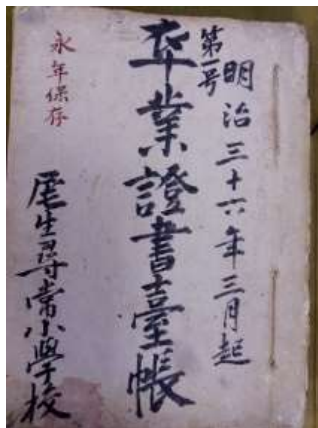 第一号
明治三十六年三月起
卒業證書臺帳
永年保存
尾生尋常小學校